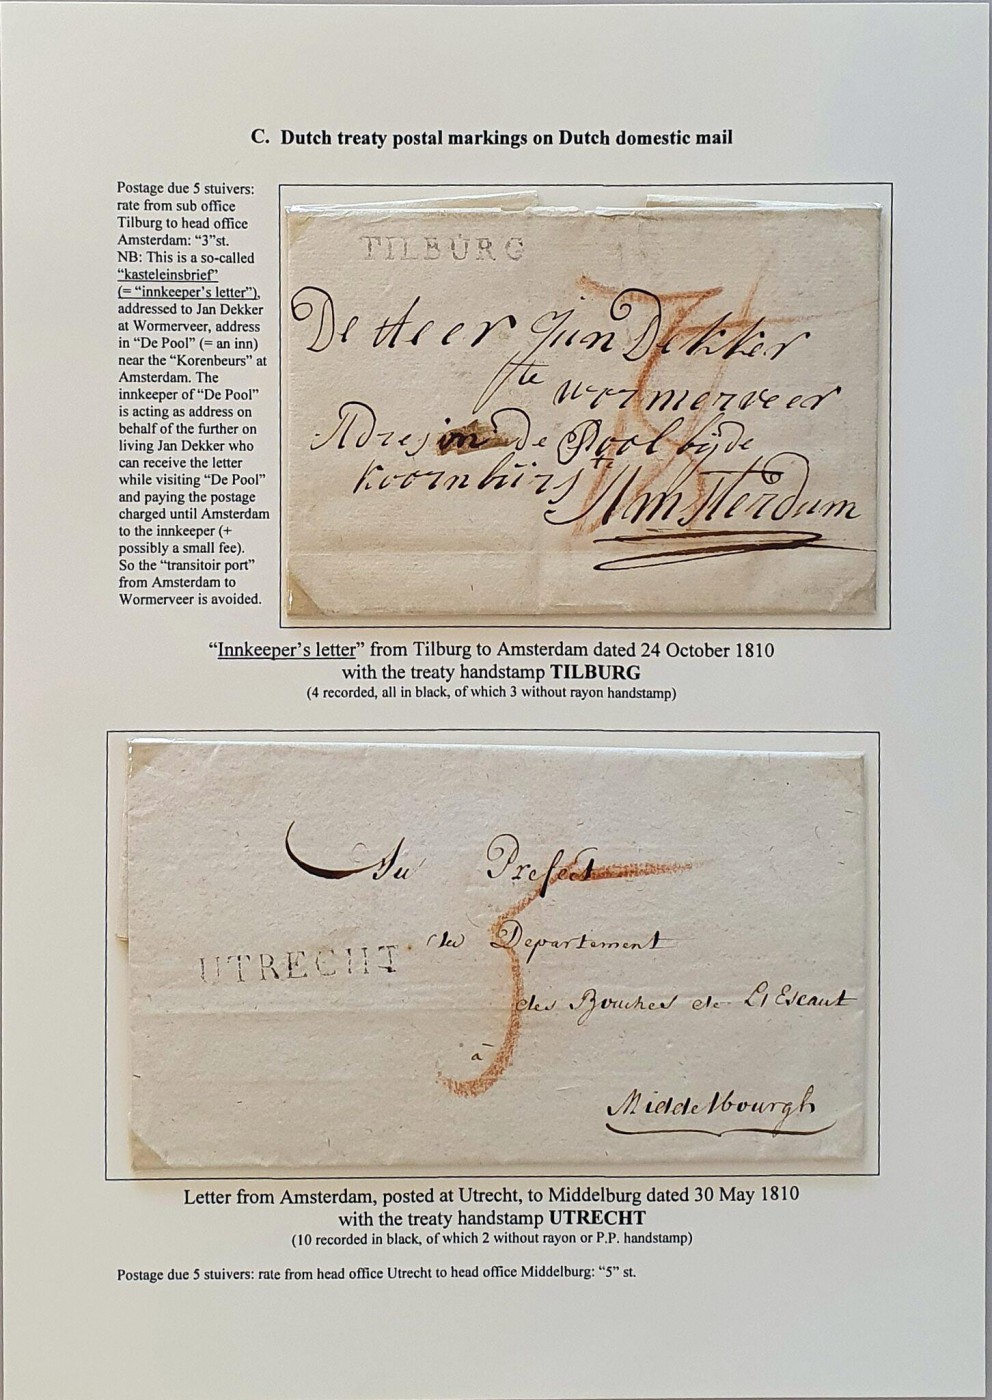 C. Dutch treaty postal markings on Dutch domestic mail
Postage due 5 stuivers:
rate from sub office
Tilburg to head office
Amsterdam: “3”st.
NB: This is a so-called
“kasteleinsbrief”
(= “innkeeper’s letter”),
addressed to Jan Dekker
at Wormerveer, address
in “De Pool” (= an inn)
near the “Korenbeurs” at
Amsterdam. The
innkeeper of “De Pool”
is acting as address on
behalf of the further on
living Jan Dekker who
can receive the letter
while visiting “De Pool”
and paying the postage
charged until Amsterdam
to the innkeeper (+
possibly a small fee).
So the “transitoir port”
from Amsterdam to
Wormerveer is avoided.
TILBURG
De Heer Jan Dekker
te wormerveer
Adres in de Pool bijde
koornbürs te Amsterdam
“Innkeeper’s letter” from Tilburg to Amsterdam dated 24 October 1810
with the treaty handstamp TILBURG
(4 recorded, all in black, of which 3 without rayon handstamp)
Au Prefect
du Departement
UTRECHT
5
des Bouches de L'Escaut
à
Middelbourgh
Letter from Amsterdam, posted at Utrecht, to Middelburg dated 30 May 1810
with the treaty handstamp UTRECHT
(10 recorded in black, of which 2 without rayon or P.P. handstamp)
Postage due 5 stuivers: rate from head office Utrecht to head office Middelburg: “5” st.